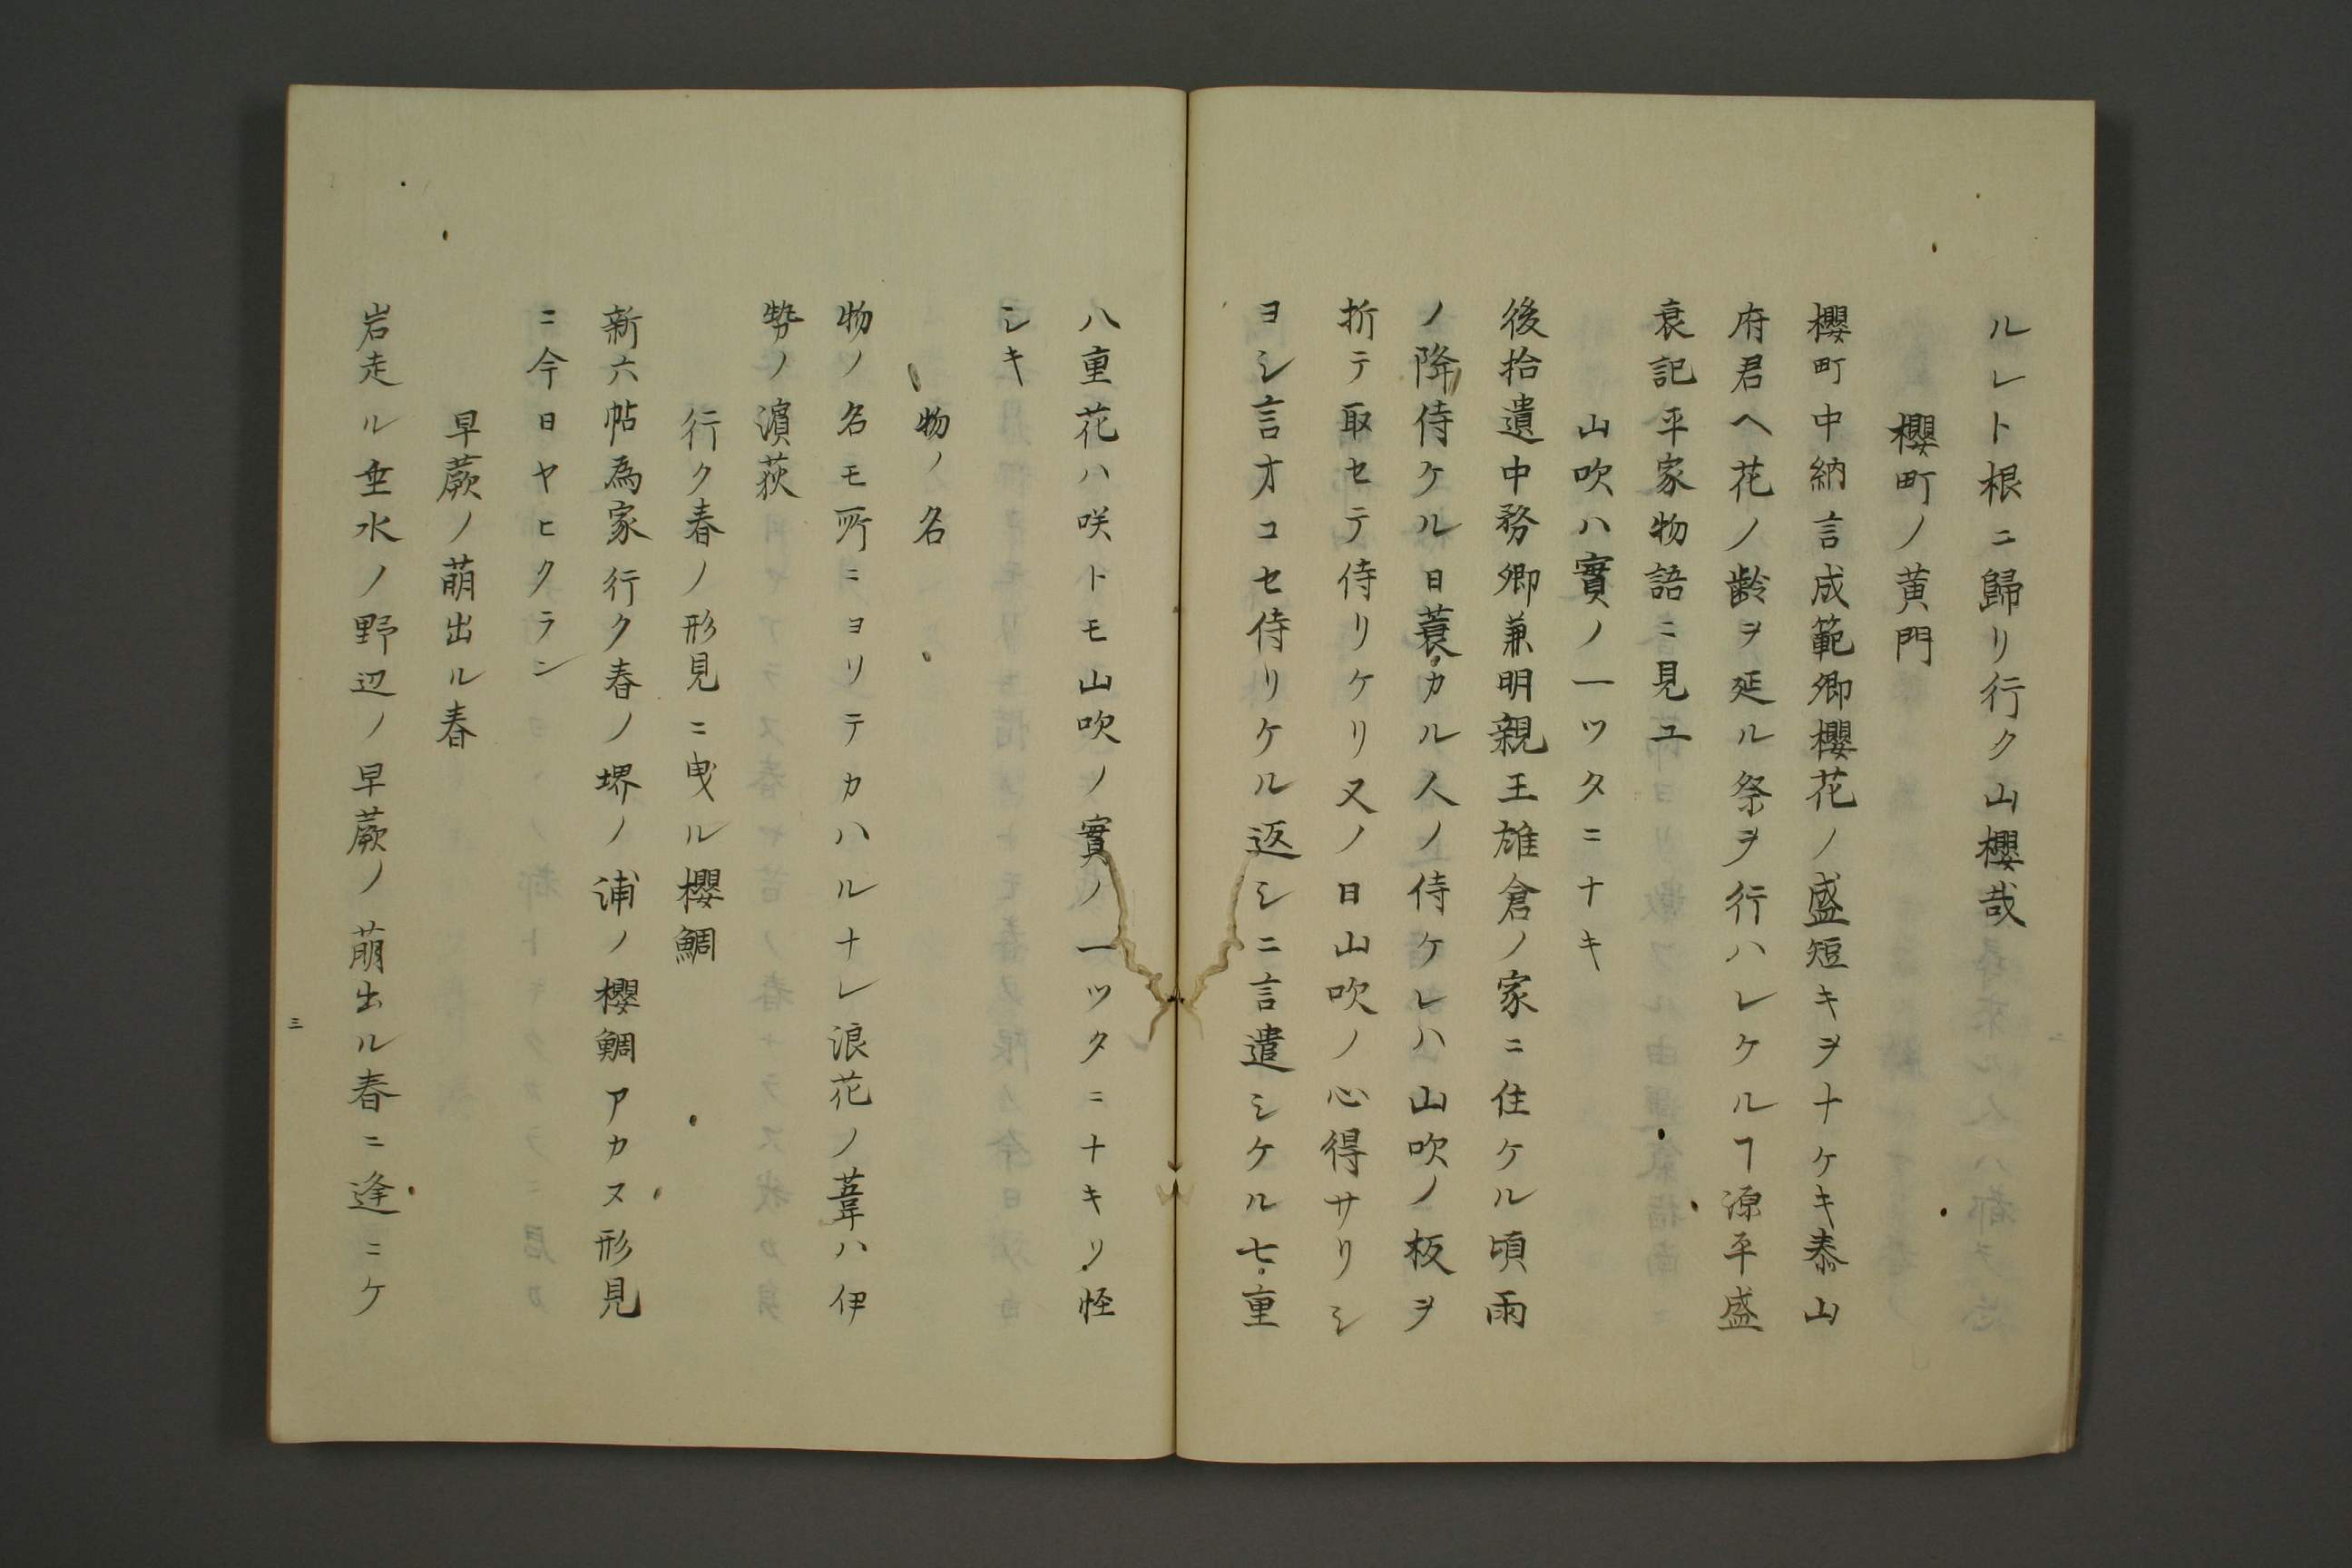 ルレト根ニ歸リ行ク山櫻哉
櫻町ノ黄門
櫻町中納言成範卿櫻花ノ盛短キヲナケキ泰山
府君ヘ花ノ齢ヲ延ル祭ヲ行ハレケルヿ源平盛
衰記平家物語ニ見ユ
山吹ハ實ノ一ツタニナキ
後拾遺中務卿兼明親王雄倉ノ家ニ住ケル頃雨
ノ降侍ケル日蓑カル人ノ侍ケレハ山吹ノ板ヲ
折テ取セテ侍リケリ又ノ日山吹ノ心得サリシ
ヨシ言オコセ侍リケル返シニ言遣シケル七重
八重花ハ咲トモ山吹ノ實ノ一ツタニナキリ怪
シキ
物ノ名
物ノ名モ所ニヨリテカハルナレ浪花ノ葦ハ伊
勢ノ濵荻
行ク春ノ形見ニ曳ル櫻鯛
新六帖為家行ク春ノ堺ノ浦ノ櫻鯛アカヌ形見
ニ今日ヤヒクラン
早蕨ノ萠出ル春
岩走ル垂水ノ野辺ノ早蕨ノ萠出ル春ニ逢ニケ
三